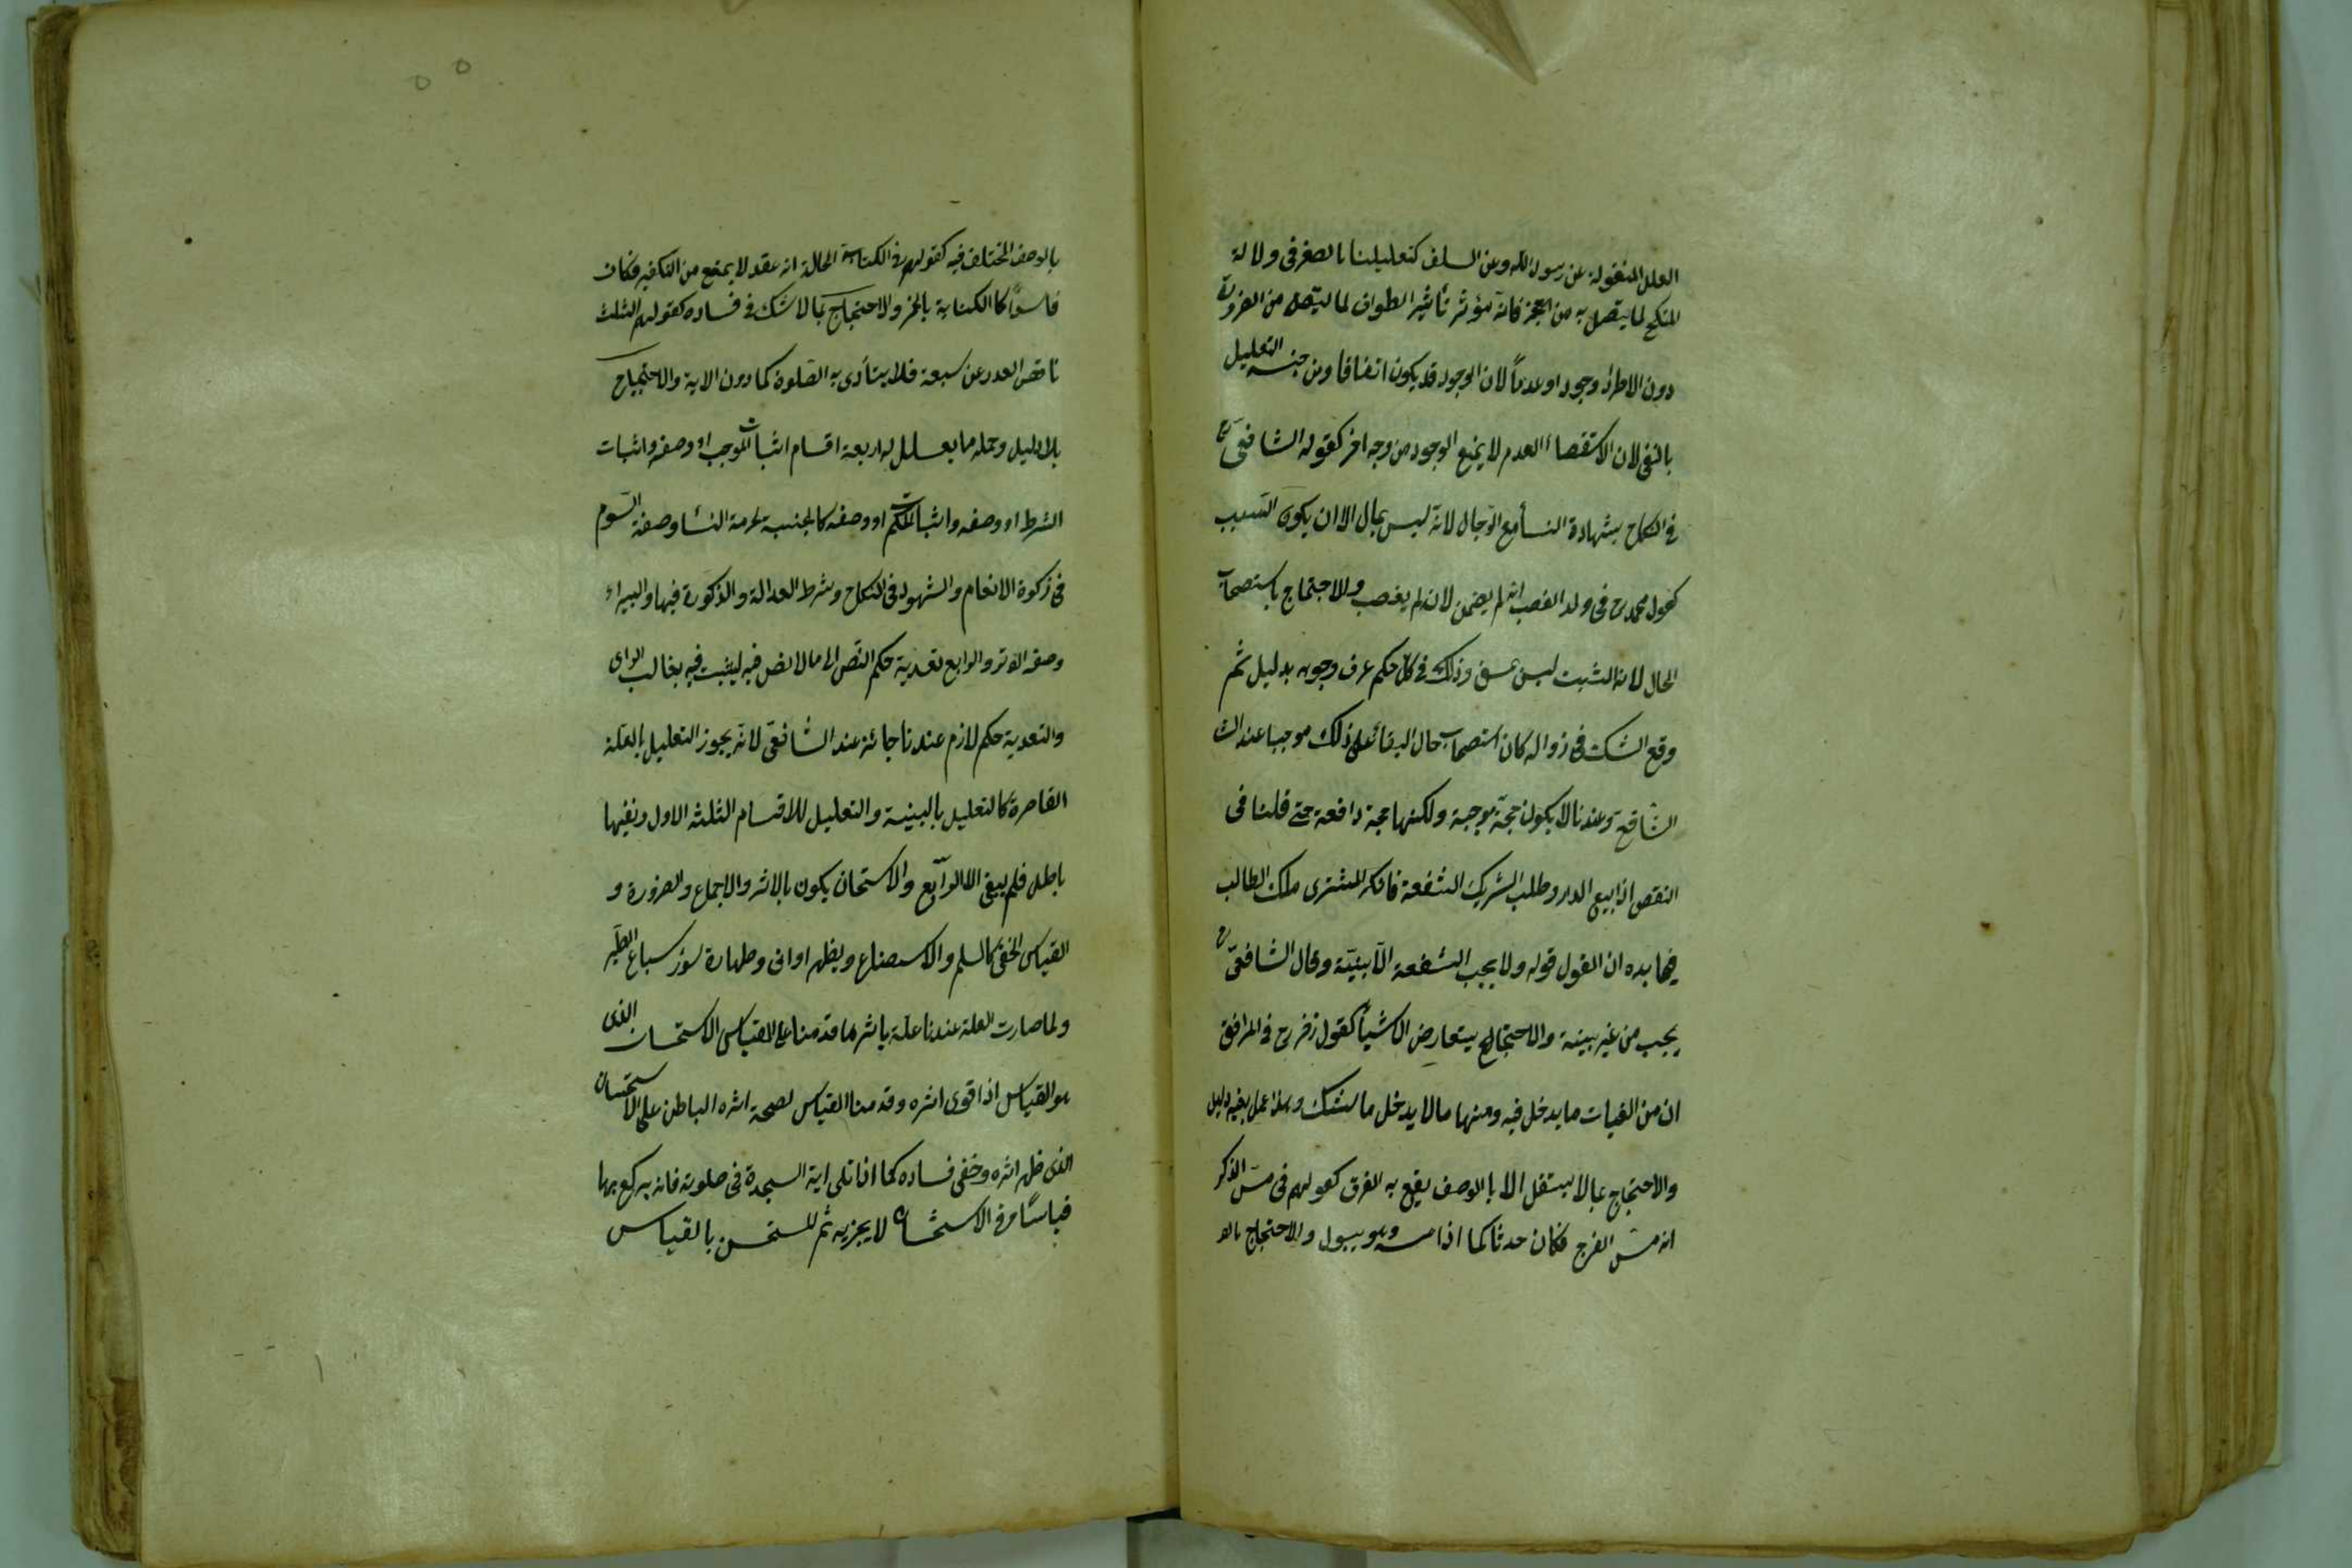 العلل المنقولة عن رسول الله وعن السلف كتعليلنا بالصغر فى ولاية
المنكح لما يتصل به من العجز فانه مؤثر تأثير الطواف لما يتصل به من الضرورة
دون الاطراد وجودا وعدماً لان الوجود قد يكون اتفاقا ومن جنسه التعليل
بالنفى لان الاستقصاء العدم لا يمنع الوجود من وجه اخر كقول الشافعى رح
فى النكاح بشهادة النساء مع الرجال لانه ليس بمال الا ان يكون السبب
كقول محمد رح فى ولد الغصب انه لم يضمن لانه لم يغصب والاحتجاج باستصحاب
الحال لان المثبت ليس بمبق وذلك فى كل حكم عرف وجوبه بدليل ثم
وقع الشك فى زواله كان استصحاب حال البقاء على ذلك موجبا عند الشا
الشافعى وعندنا لا يكون حجة موجبة ولكنها حجة دافعة حتى قلنا فى
الشقص اذا بيع الدار وطلب الشريك الشفعة فانكر المشترى ملك الطالب
فيما بيده ان القول قوله ولا يجب الشفعة الا ببينة وقال الشافعى رح
يجب من غير بينة والاحتجاج بتعارض الاشياء كقول زفر رح فى المرافق
ان من الغايات ما يدخل فيه ومنها ما لا يدخل بالشك وهذا عمل بغير دليل
والاحتجاج بما لا يستقل الا بالوصف يقع به الفرق كقولهم فى مس الذكر
انه مس الفرج فكان حدثا كما اذا مسه وهو يبول والاحتجاج بالو
بالوصف المختلف فيه كقولهم فى الكتابة الحالة انه عقد لا يمنع من التكفير فكان
فاسداً كالكتابة بالخمر والاحتجاج بما لا شك فى فساده كقولهم الثلث
ناقص العدد عن سبعة فلا يتأدى به الصلوة كما دون الاية والاحتجاج
بلا دليل وجملة ما يعلل له اربعة اقسام اثبات الموجب او وصفه واثبات
الشرط او وصفه واثبات الحكم او وصفه كالجنسية لحرمة النسا وصفة السوم
فى زكوة الانعام والشهود فى النكاح وشرط العدالة والذكورة فيها والبتيراء
وصفة الوتر والرابع تعدية حكم النص الى ما لا نص فيه ليثبت فيه بغالب الراى
والتعدية حكم لازم عندنا جائز عند الشافعى لانه يجوز التعليل بالعلة
القاصرة كالتعليل بالثمنية والتعليل للاقسام الثلثة الاول ونفيها
باطل فلم يبق الا الرابع والاستحسان يكون بالاثر والاجماع والضرورة و
القياس الخفى كالسلم والاستصناع وتطهير اوانى وطهارة سؤر سباع الطير
ولما صارت العلة عندنا علة باثرها قدمنا على القياس الاستحسان الذى
هو القياس اذا قوى اثره وقدمنا القياس لصحة اثره الباطن على الاستحسان
الذى ظهر اثره وخفى فساده كما اذا تلى اية السجدة فى صلوته فانه يركع بها
قياساً وفى الاستحسان لا يجزيه ثم المستحسن بالقياس